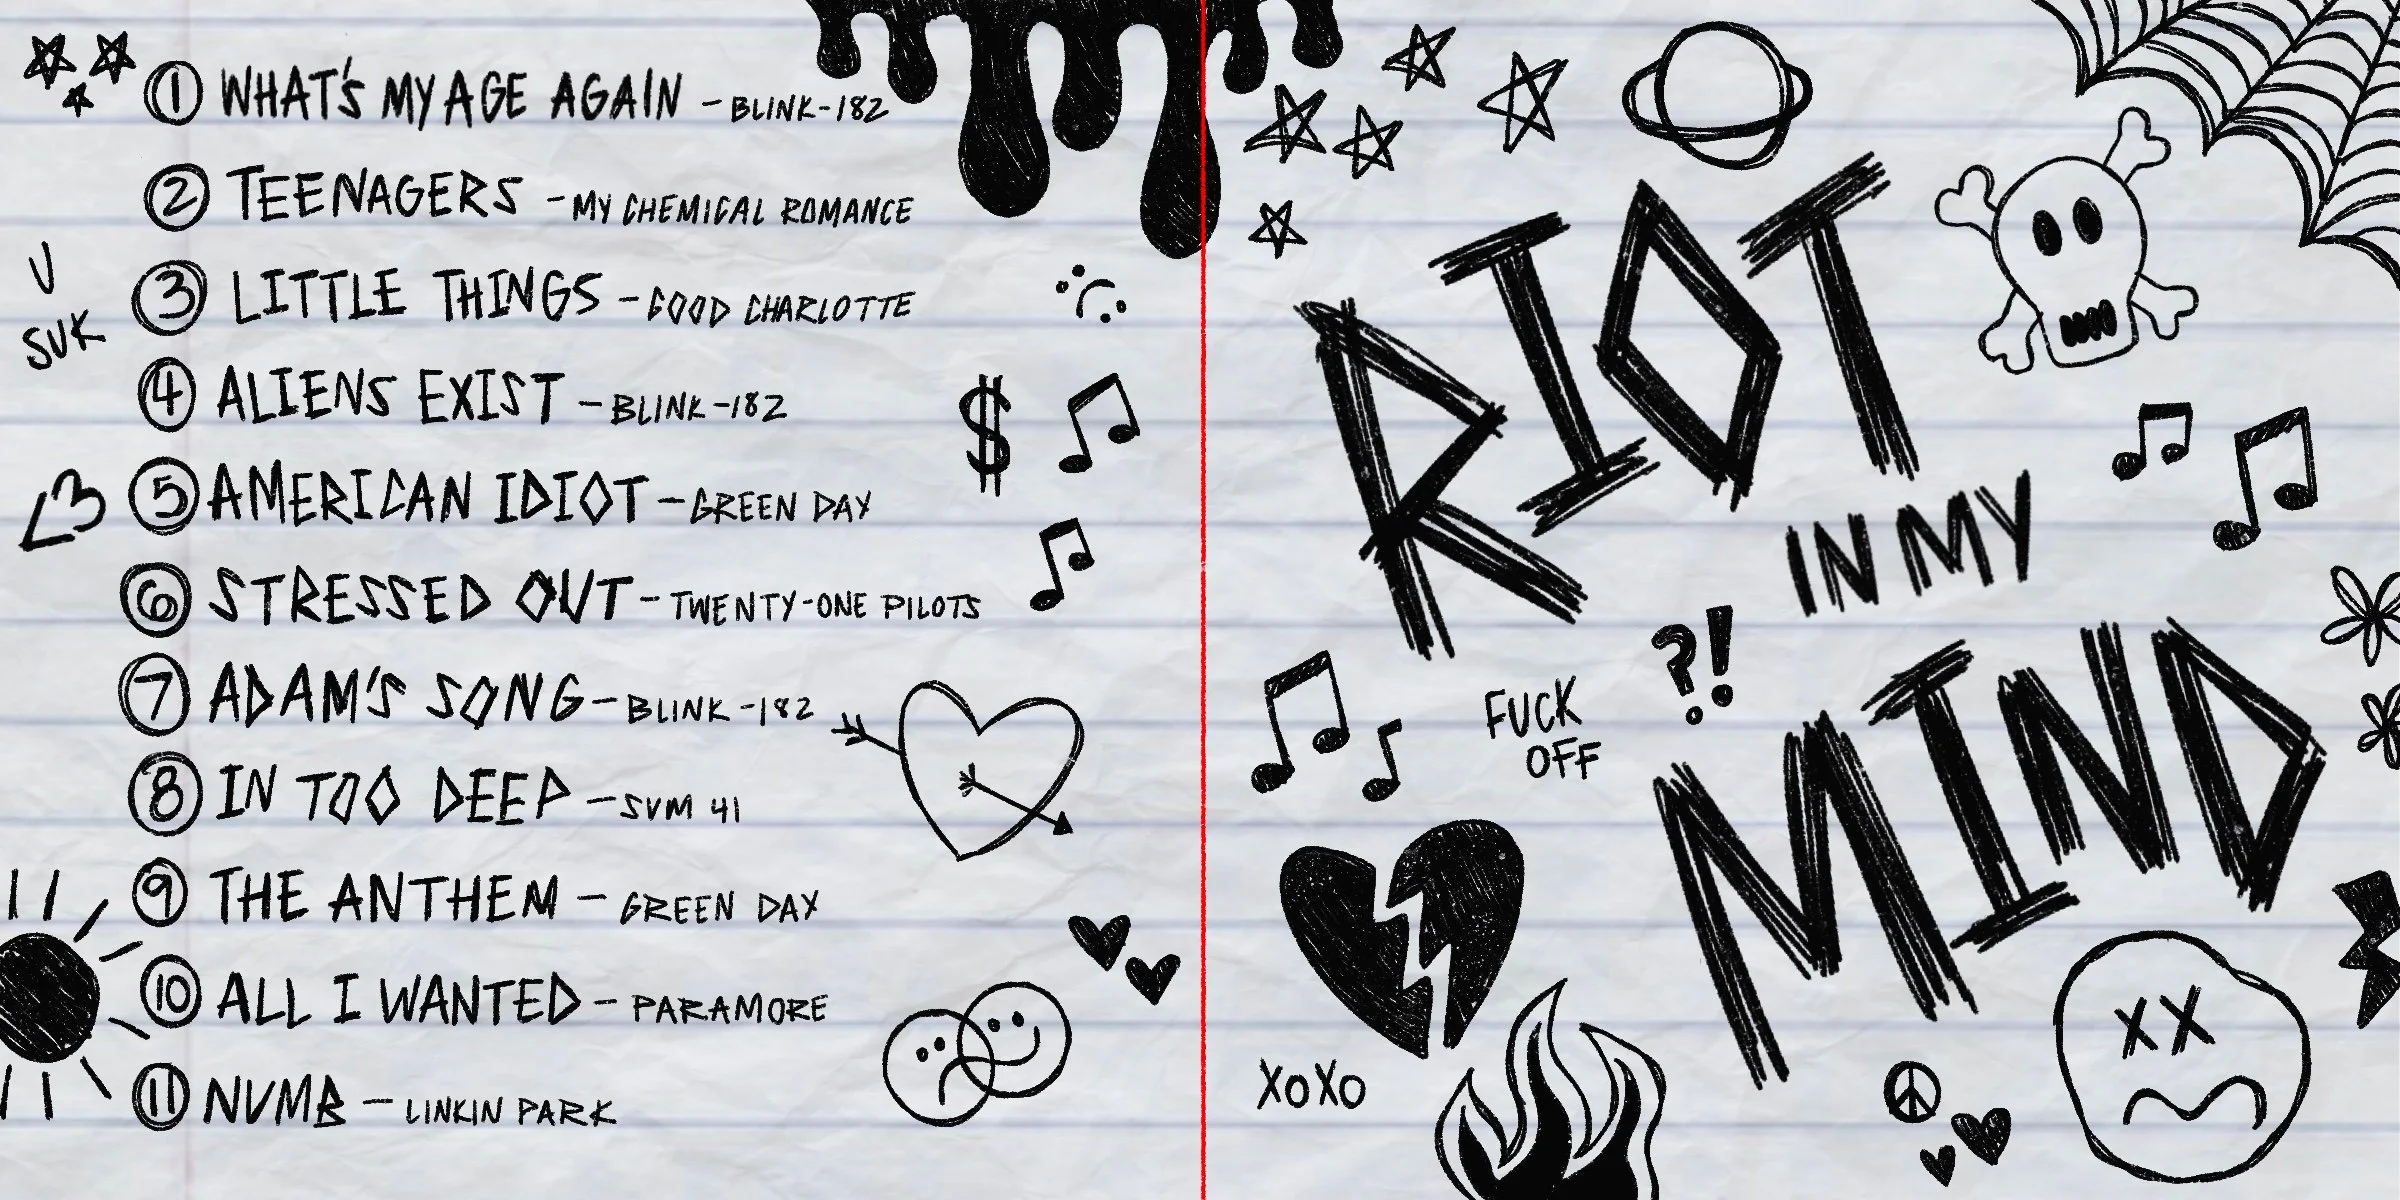 ① WHAT'S MY AGE AGAIN - BLINK-182
② TEENAGERS - MY CHEMICAL ROMANCE
③ LITTLE THINGS - GOOD CHARLOTTE
④ ALIENS EXIST - BLINK-182
⑤ AMERICAN IDIOT - GREEN DAY
⑥ STRESSED OUT - TWENTY-ONE PILOTS
⑦ ADAM'S SONG - BLINK-182
⑧ IN TOO DEEP - SVM 41
⑨ THE ANTHEM - GREEN DAY
⑩ ALL I WANTED - PARAMORE
⑪ NVMB - LINKIN PARK
U
SUK
<3
$
RIOT
IN MY
MIND
?!
FUCK
OFF
XOXO